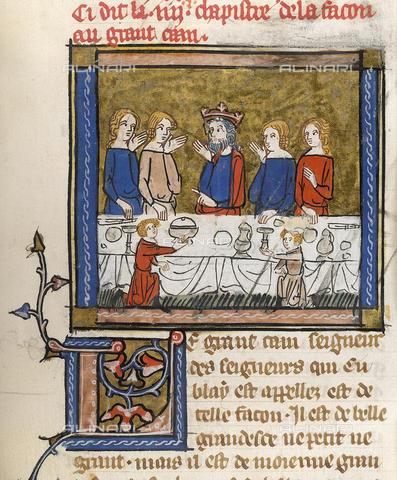 Ci dit li .iiij. chapistre de la facon
au grant cam.
ALINARI
ALINARI
ALINARI
ALINARI
ALINARI
ALINARI
Le grant cam seigneur
des seigneurs qui cu
blay est appellez est de
telle facon. Il est de belle
grandesce ne petit ne
grant. mais il est de moienne gran